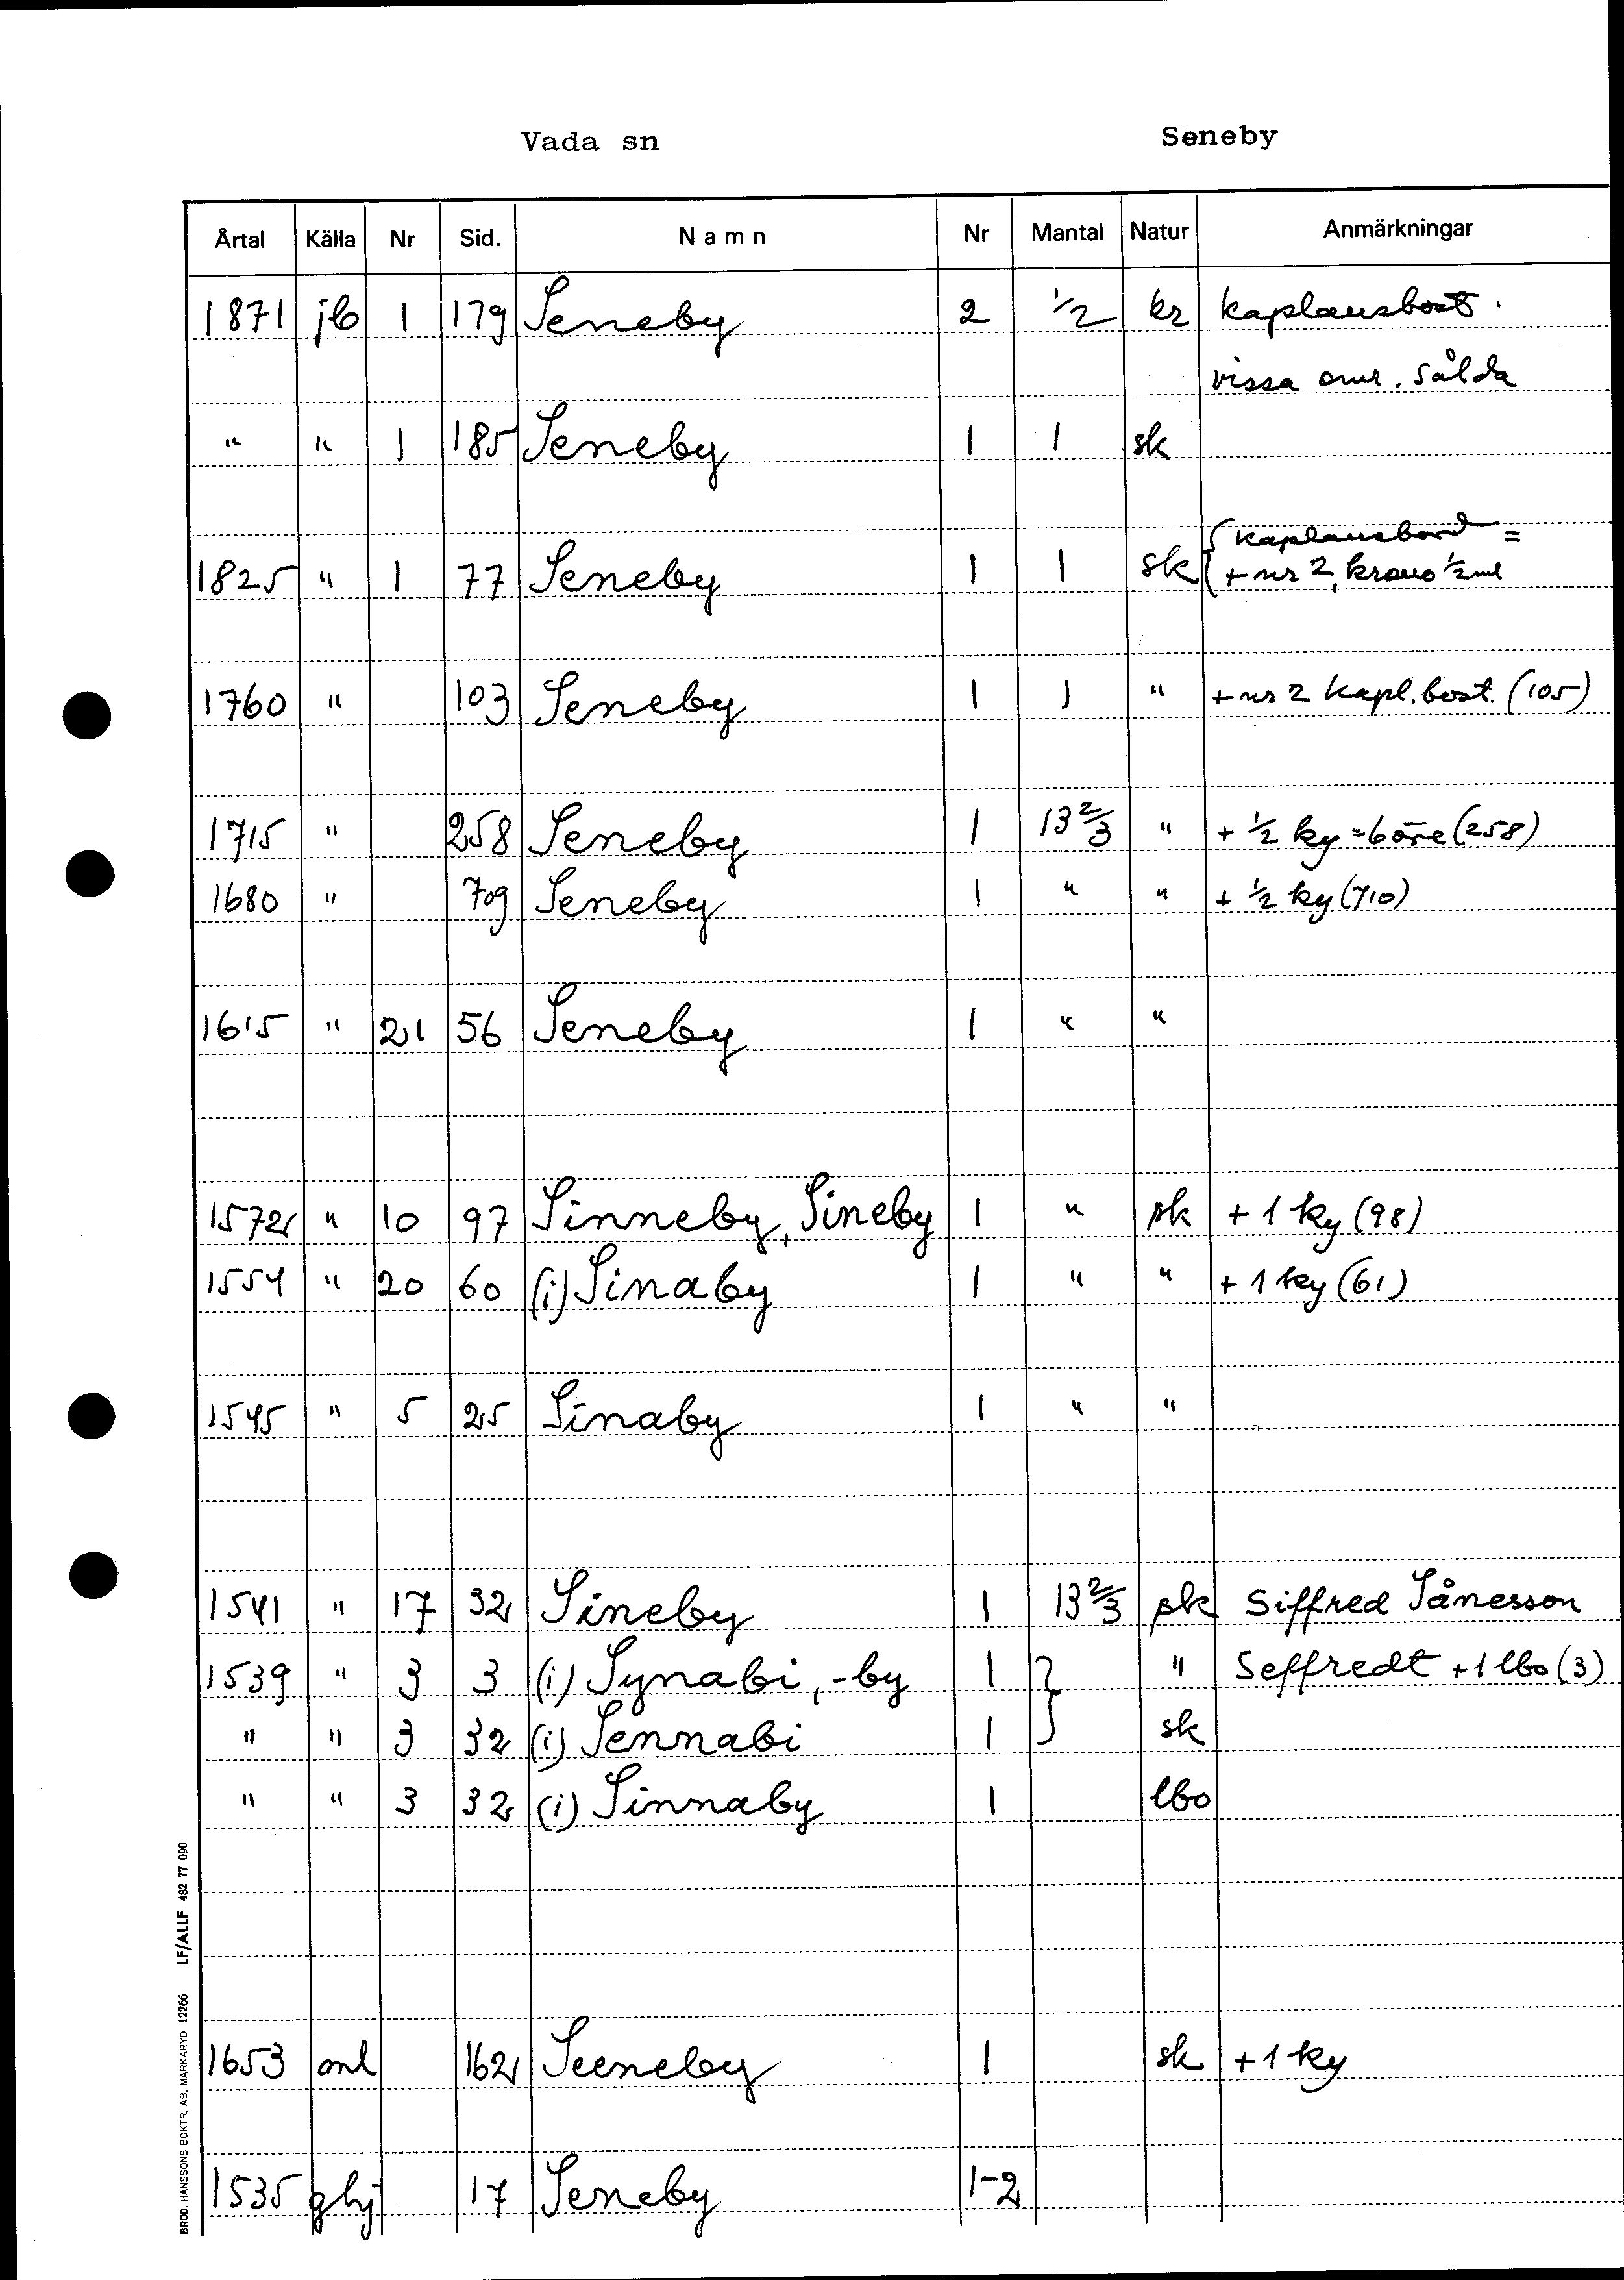 Vada sn Seneby
Årtal Källa Nr Sid. Namn Nr Mantal Natur Anmärkningar
1871 jb 1 179 Seneby 2 1/2 kr kaplansbost.
vissa omr. sålda
" " 1 185 Seneby 1 1 sk
kaplansbord =
1825 " 1 77 Seneby 1 1 sk + nr 2, krono 1/2 ml
1760 " 103 Seneby 1 1 " + nr 2 kapl. bost. (105)
1715 " 258 Seneby 1 13 2/3 " + 1/2 ky = 6 öre (258)
1680 " 709 Seneby 1 " " + 1/2 ky (710)
1615 " 21 56 Seneby 1 " "
1572 " 10 97 Sinneby, Sineby 1 " sk + 1 ky (98)
1554 " 20 60 (i) Sinaby 1 " " + 1 ky (61)
1545 " 5 25 Sinaby 1 " "
1541 " 17 32 Sineby 1 13 2/3 sk Siffred Sånesson
1539 " 3 3 (i) Synabi, -by 1 " Seffredt + 1 lbo (3)
" " 3 32 (i) Sennabi 1 sk
" " 3 32 (i) Sinnaby 1 lbo
1653 oml 162 Seeneby 1 sk + 1 ky
1535 ghj 17 Seneby 1-2
BRÖD. HANSSONS BOKTR. AB, MARKARYD 12266 LF/ALLF 482 77 090